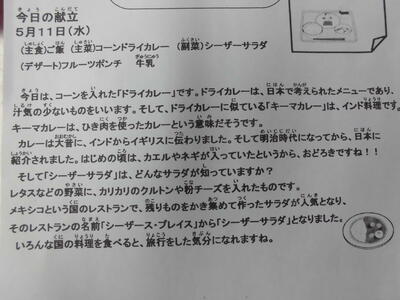 今日の献立
5月11日(水)
(主食)ご飯 (主菜)コーンドライカレー (副菜)シーザーサラダ
(デザート)フルーツポンチ 牛乳
今日は、コーンを入れた「ドライカレー」です。ドライカレーは、日本で考えられたメニューであり、
汁気の少ないものをいいます。そして、ドライカレーに似ている「キーマカレー」は、インド料理です。
キーマカレーは、ひき肉を使ったカレーという意味だそうです。
カレーは大昔に、インドからイギリスに伝わりました。そして明治時代になってから、日本に
紹介されました。はじめの頃は、カエルやネギが入っていたというから、おどろきですね!!
そして「シーザーサラダ」は、どんなサラダが知っていますか?
レタスなどの野菜に、カリカリのクルトンや粉チーズを入れたものです。
メキシコという国のレストランで、残りものをかき集めて作ったサラダが人気となり、
そのレストランの名前「シーザース・プレイス」から「シーザーサラダ」となりました。
いろんな国の料理を食べると、旅行をした気分になれますね。